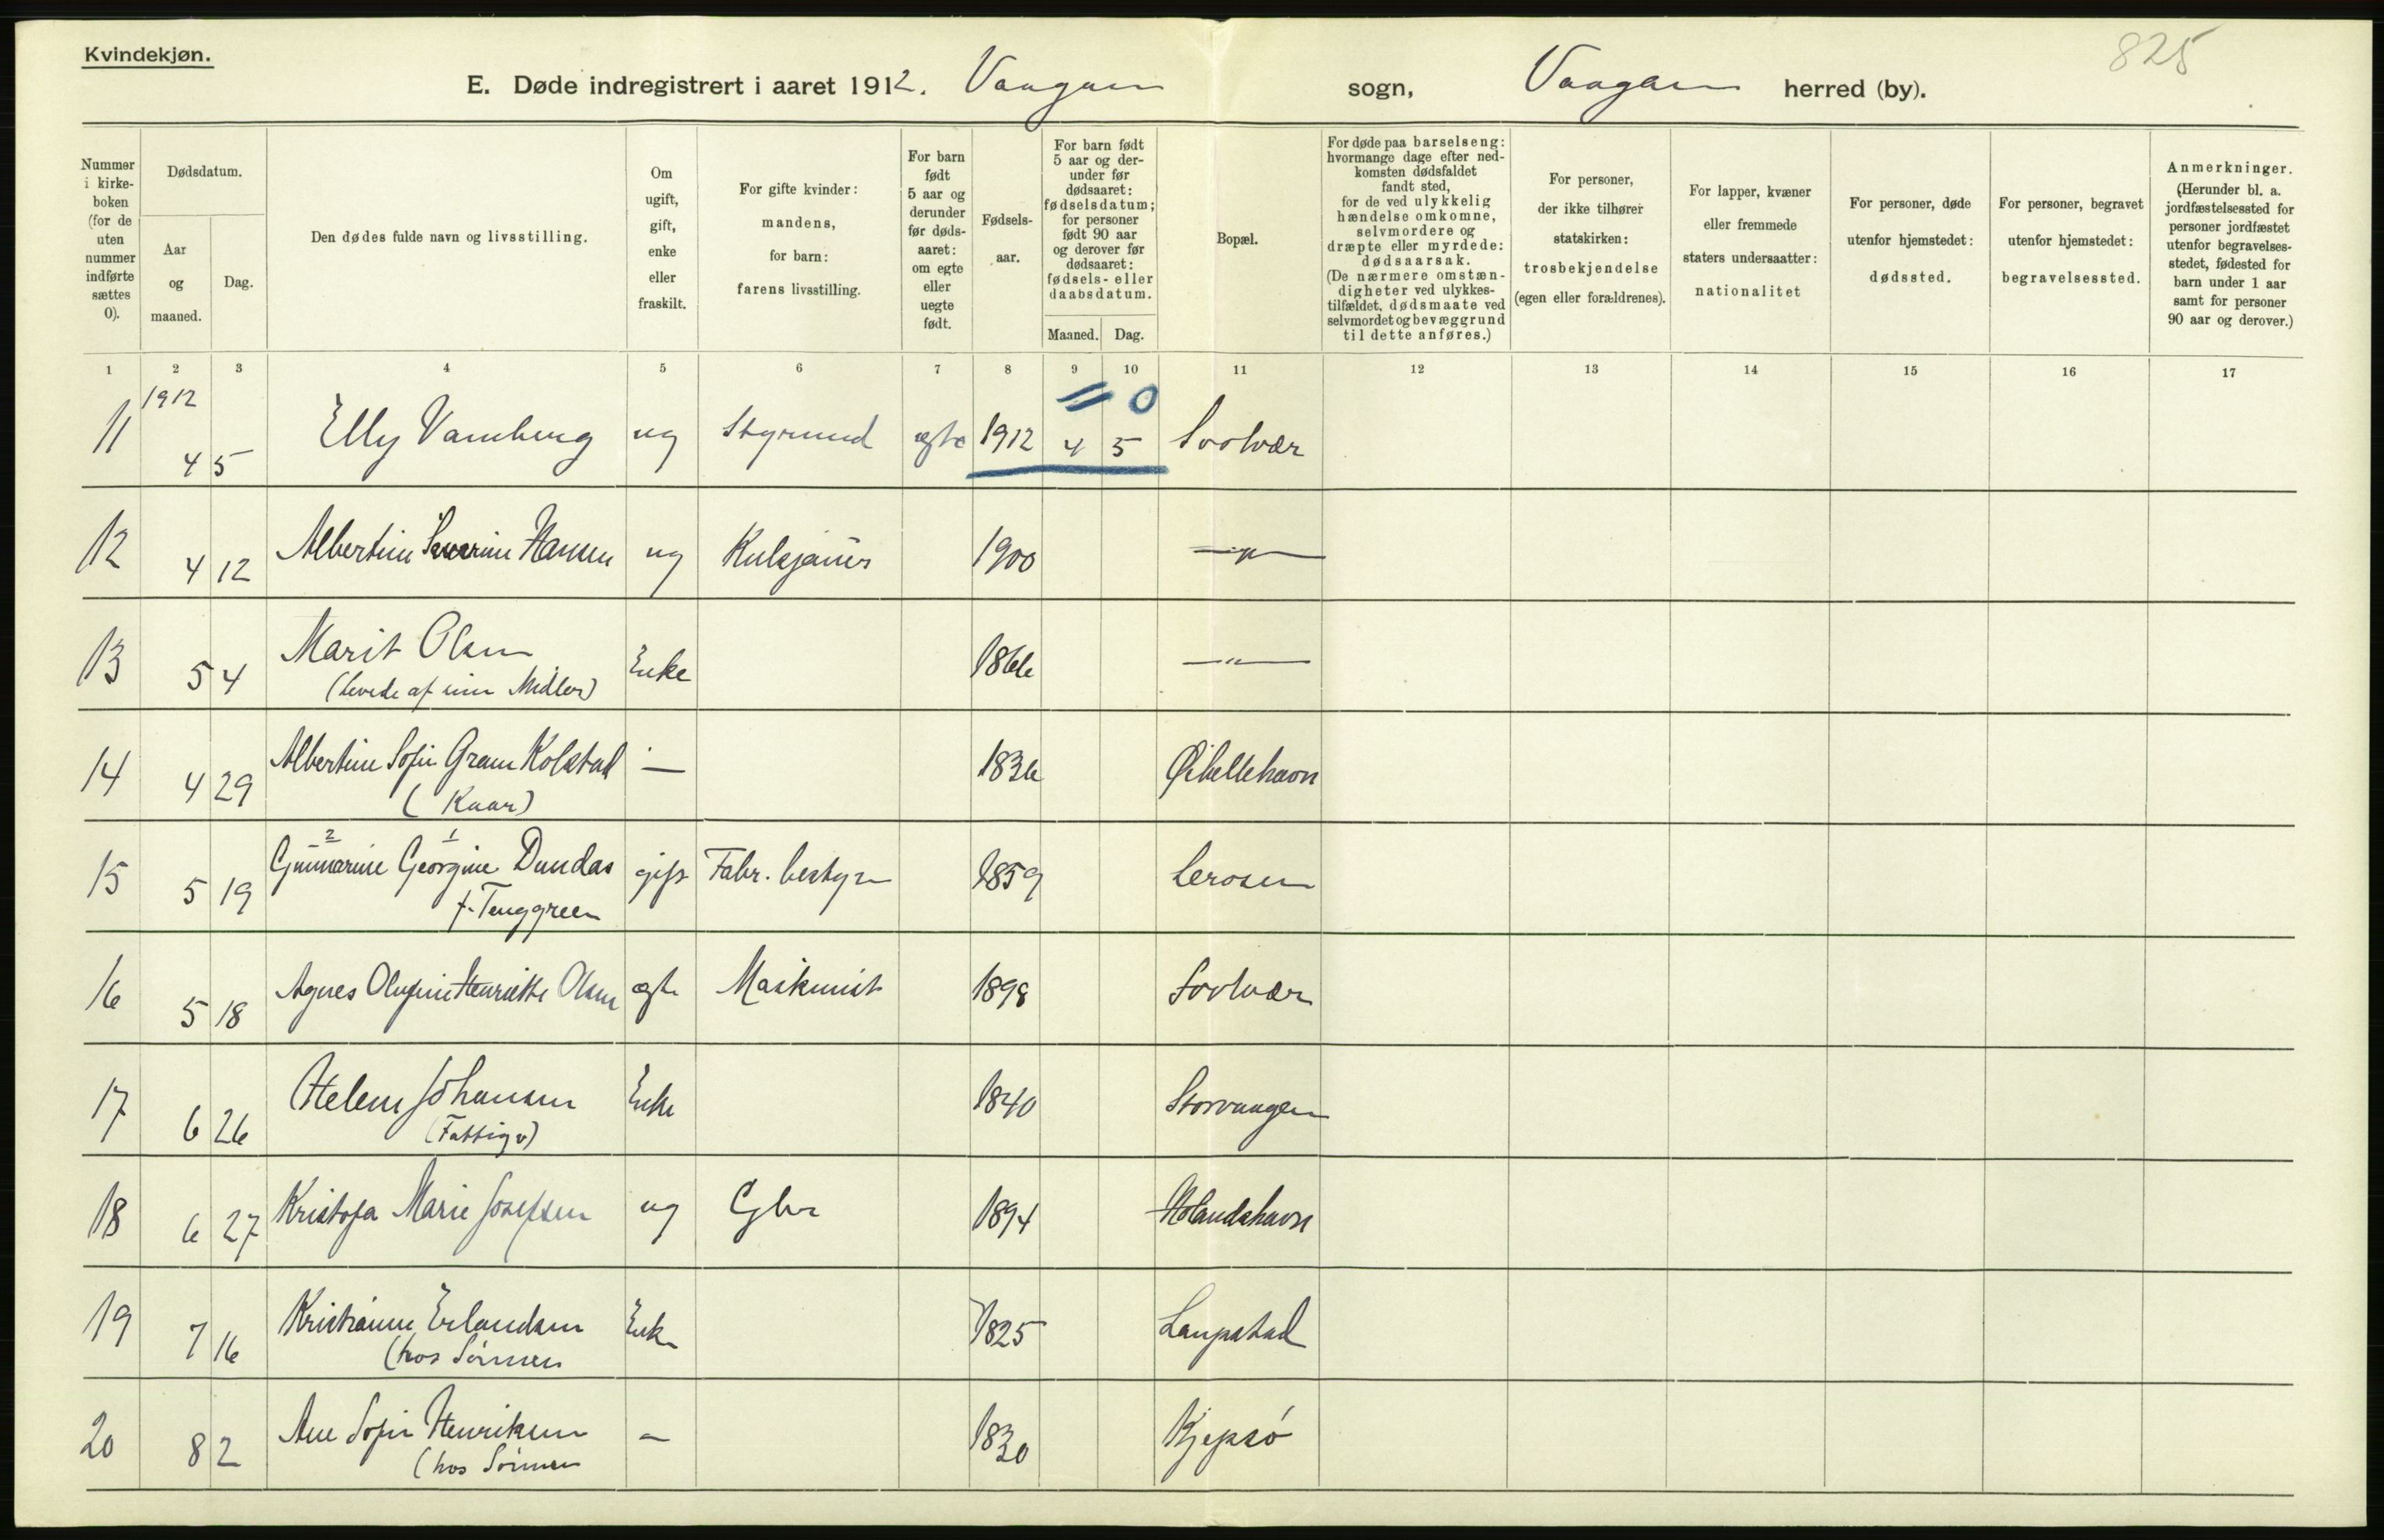 Kvindekjøn.
825
E. Døde indregistrert i aaret 1912. Vaagan sogn, Vaagan herred (by).
Nummer i kirke-boken (for de uten nummer indførte sættes 0).
Dødsdatum.
Aar og maaned.
Dag.
Den dødes fulde navn og livsstilling.
Om ugift, gift, enke eller fraskilt.
For gifte kvinder: mandens, for barn: farens livsstilling.
For barn født 5 aar og derunder før døds-aaret: om egte eller uegte født.
Fødsels-aar.
For barn født 5 aar og der-under før dødsaaret: fødselsdatum; for personer født 90 aar og derover før dødsaaret: fødsels- eller daabsdatum.
Maaned.
Dag.
Bopæl.
For døde paa barselseng: hvormange dage efter ned-komsten dødsfaldet fandt sted, for de ved ulykkelig hændelse omkomne, selvmordere og dræpte eller myrdede: dødsaarsak. (De nærmere omstæn-digheter ved ulykkes-tilfældet, dødsmaate ved selvmordet og bevæggrund til dette anføres.)
For personer, der ikke tilhører statskirken: trosbekjendelse (egen eller forældrenes).
For lapper, kvæner eller fremmede staters undersaatter: nationalitet
For personer, døde utenfor hjemstedet: dødssted.
For personer, begravet utenfor hjemstedet: begravelsessted.
Anmerkninger. (Herunder bl. a. jordfæstelsessted for personer jordfæstet utenfor begravelses-stedet, fødested for barn under 1 aar samt for personer 90 aar og derover.)
1 2 3 4 5 6 7 8 9 10 11 12 13 14 15 16 17
1912
0
11 4 5 Elly Vamberg ug Styrmnd egte 1912 4 5 Svolvær
12 4 12 Albertine Severine Hansen ug 1900 —"—
13 5 4 Marit Olsen Enke 1866 —"—
(levede af sine Midler)
14 4 29 Albertine Sofie Gram Kolstad — 1836 Ørhellehavn
(Kaar)
2 1
15 5 19 Gunnarine Georgine Dundas gift Fabr. bestyr 1859 Lerosen
f. Tenggreen
16 5 18 Agnes Olufine Henriette Olsen egte Maskinist 1898 Svolvær
17 6 26 Helene Johansen Enke 1840 Storvaagen
(Fattigv)
18 6 27 Kristofa Marie Josefsen ug Gbr 1894 Holandshavn
19 7 16 Kristianne Erlandsen Enke 1825 Laupstad
(hos Sønnen
20 8 2 Ane Sofie Henriksen — 1830 Kjepsø
(hos Sønnen